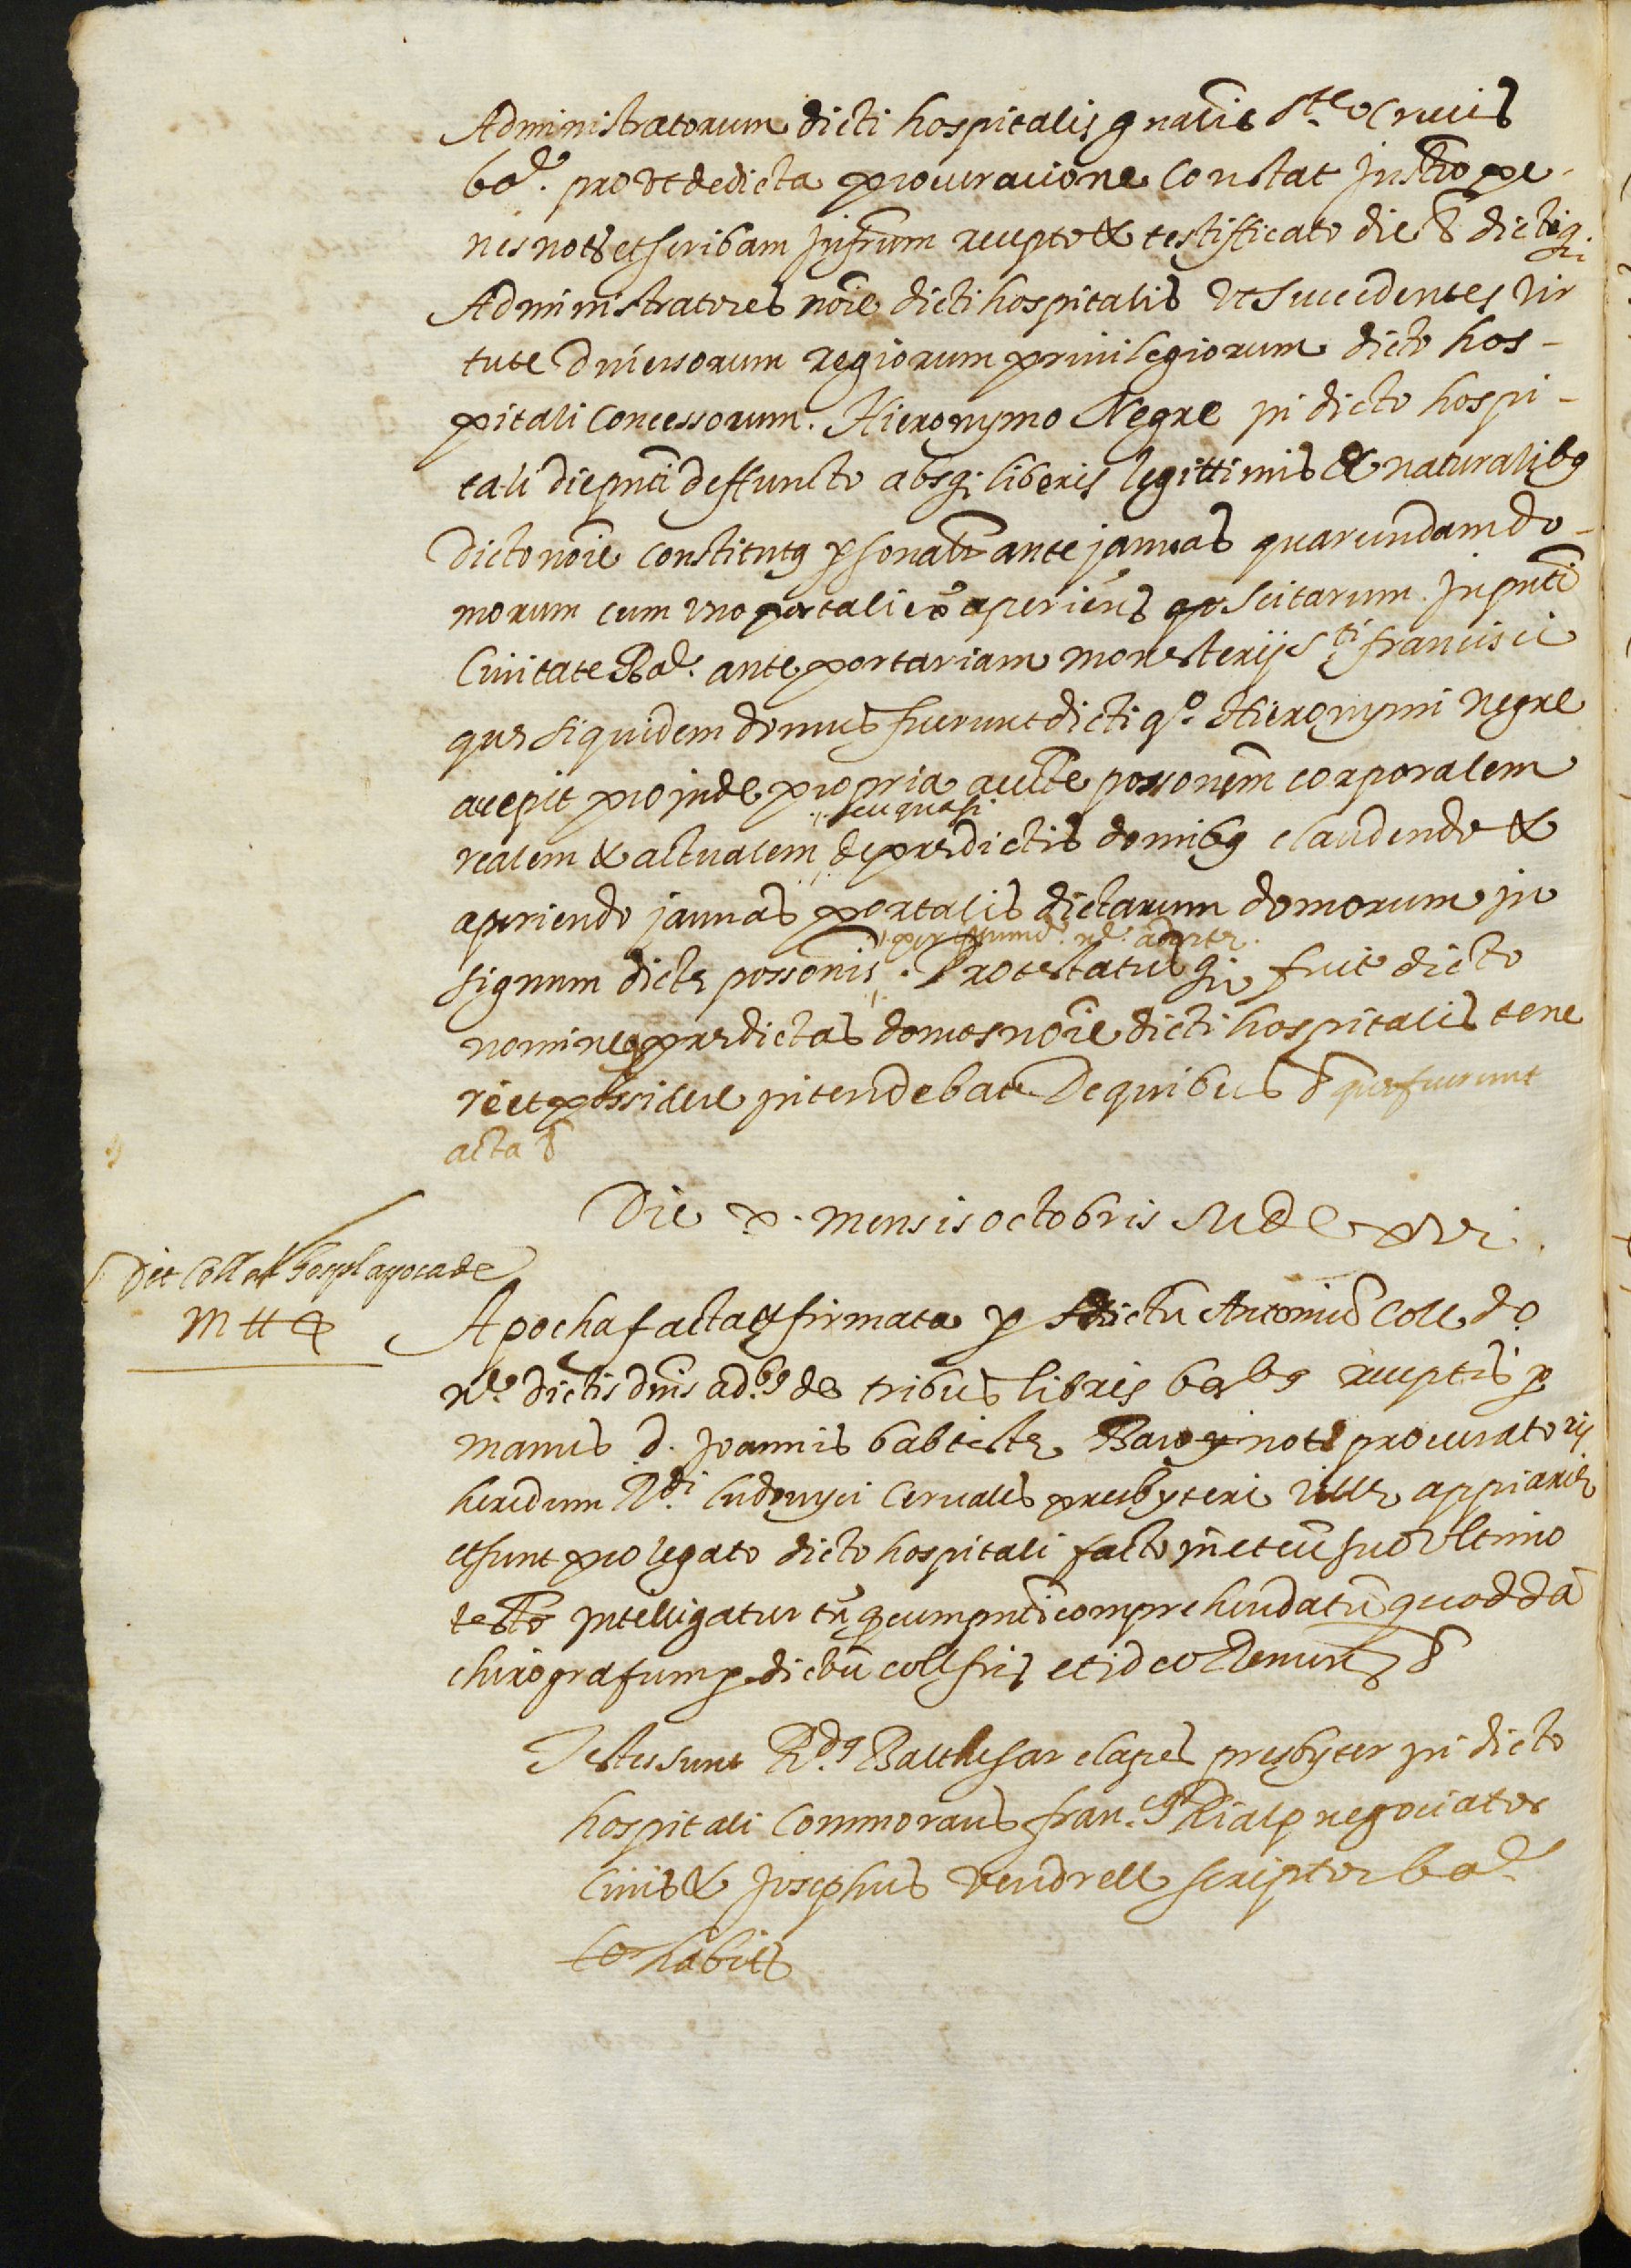 Administratorum dicti hospitalis gnalis Ste Crucis
bae. prout de dicta procuracione constat Instro pe-
nes nots et scribam Infrum recepto & testifficato die & dictiq;
Administratores noie dicti hospitalis vt succedentes vir
tute diuersorum regiorum priuilegiorum dicto hos-
pitali concessorum. Hieronymo Negre in dicto hospi-
tali die pnti deffuncto absq; liberis legittimis & naturalibg
dicto noie constitutg psonalr ante januas quarundam do-
morum cum vno portali eo aperiens scitarum. In pnti
Ciuitate Bae. ante portariam monesterij Sti francisci
que siquidem domus fuerunt dicti qo. Hieronymi negre
accepit pro inde propria aucte possonem corporalem
seu quasi
realem & actualem de predictis domibg claudendo &
aperiendo januas portalis dictarum domorum in
signum dicte possonis. Protestatusq; fuit dicto
nomine predictas domos noie dicti hospitalis tene
re et possidere intendebat De quibus & que fuerunt
acta &
Die x. mensis octobris MDCxvi.
Dit Coll al hospl apoca de
m tt &
Apocha facta & firmata p dictu Antoniu Coll do
ne dictis dnis adbg de tribus libris babg receptis p
manus d. Joannis babtiste not procuratorij
heredum Rdi ludouyci Ceruales presbyteri ville appiarie
et sunt pro legato dicto hospitali facto in et cu suo vltimo
testo intelligatur tn q cum pnti comprehendatu quodda
chirografum p dictu coll fris et ideo Renun &
Testes sunt Rdg Balthesar clapes presbyter in dicto
hospitali Commorans fran.cg Rialp negociator
Ciuis & Josephus vendrell scriptor bae
habits